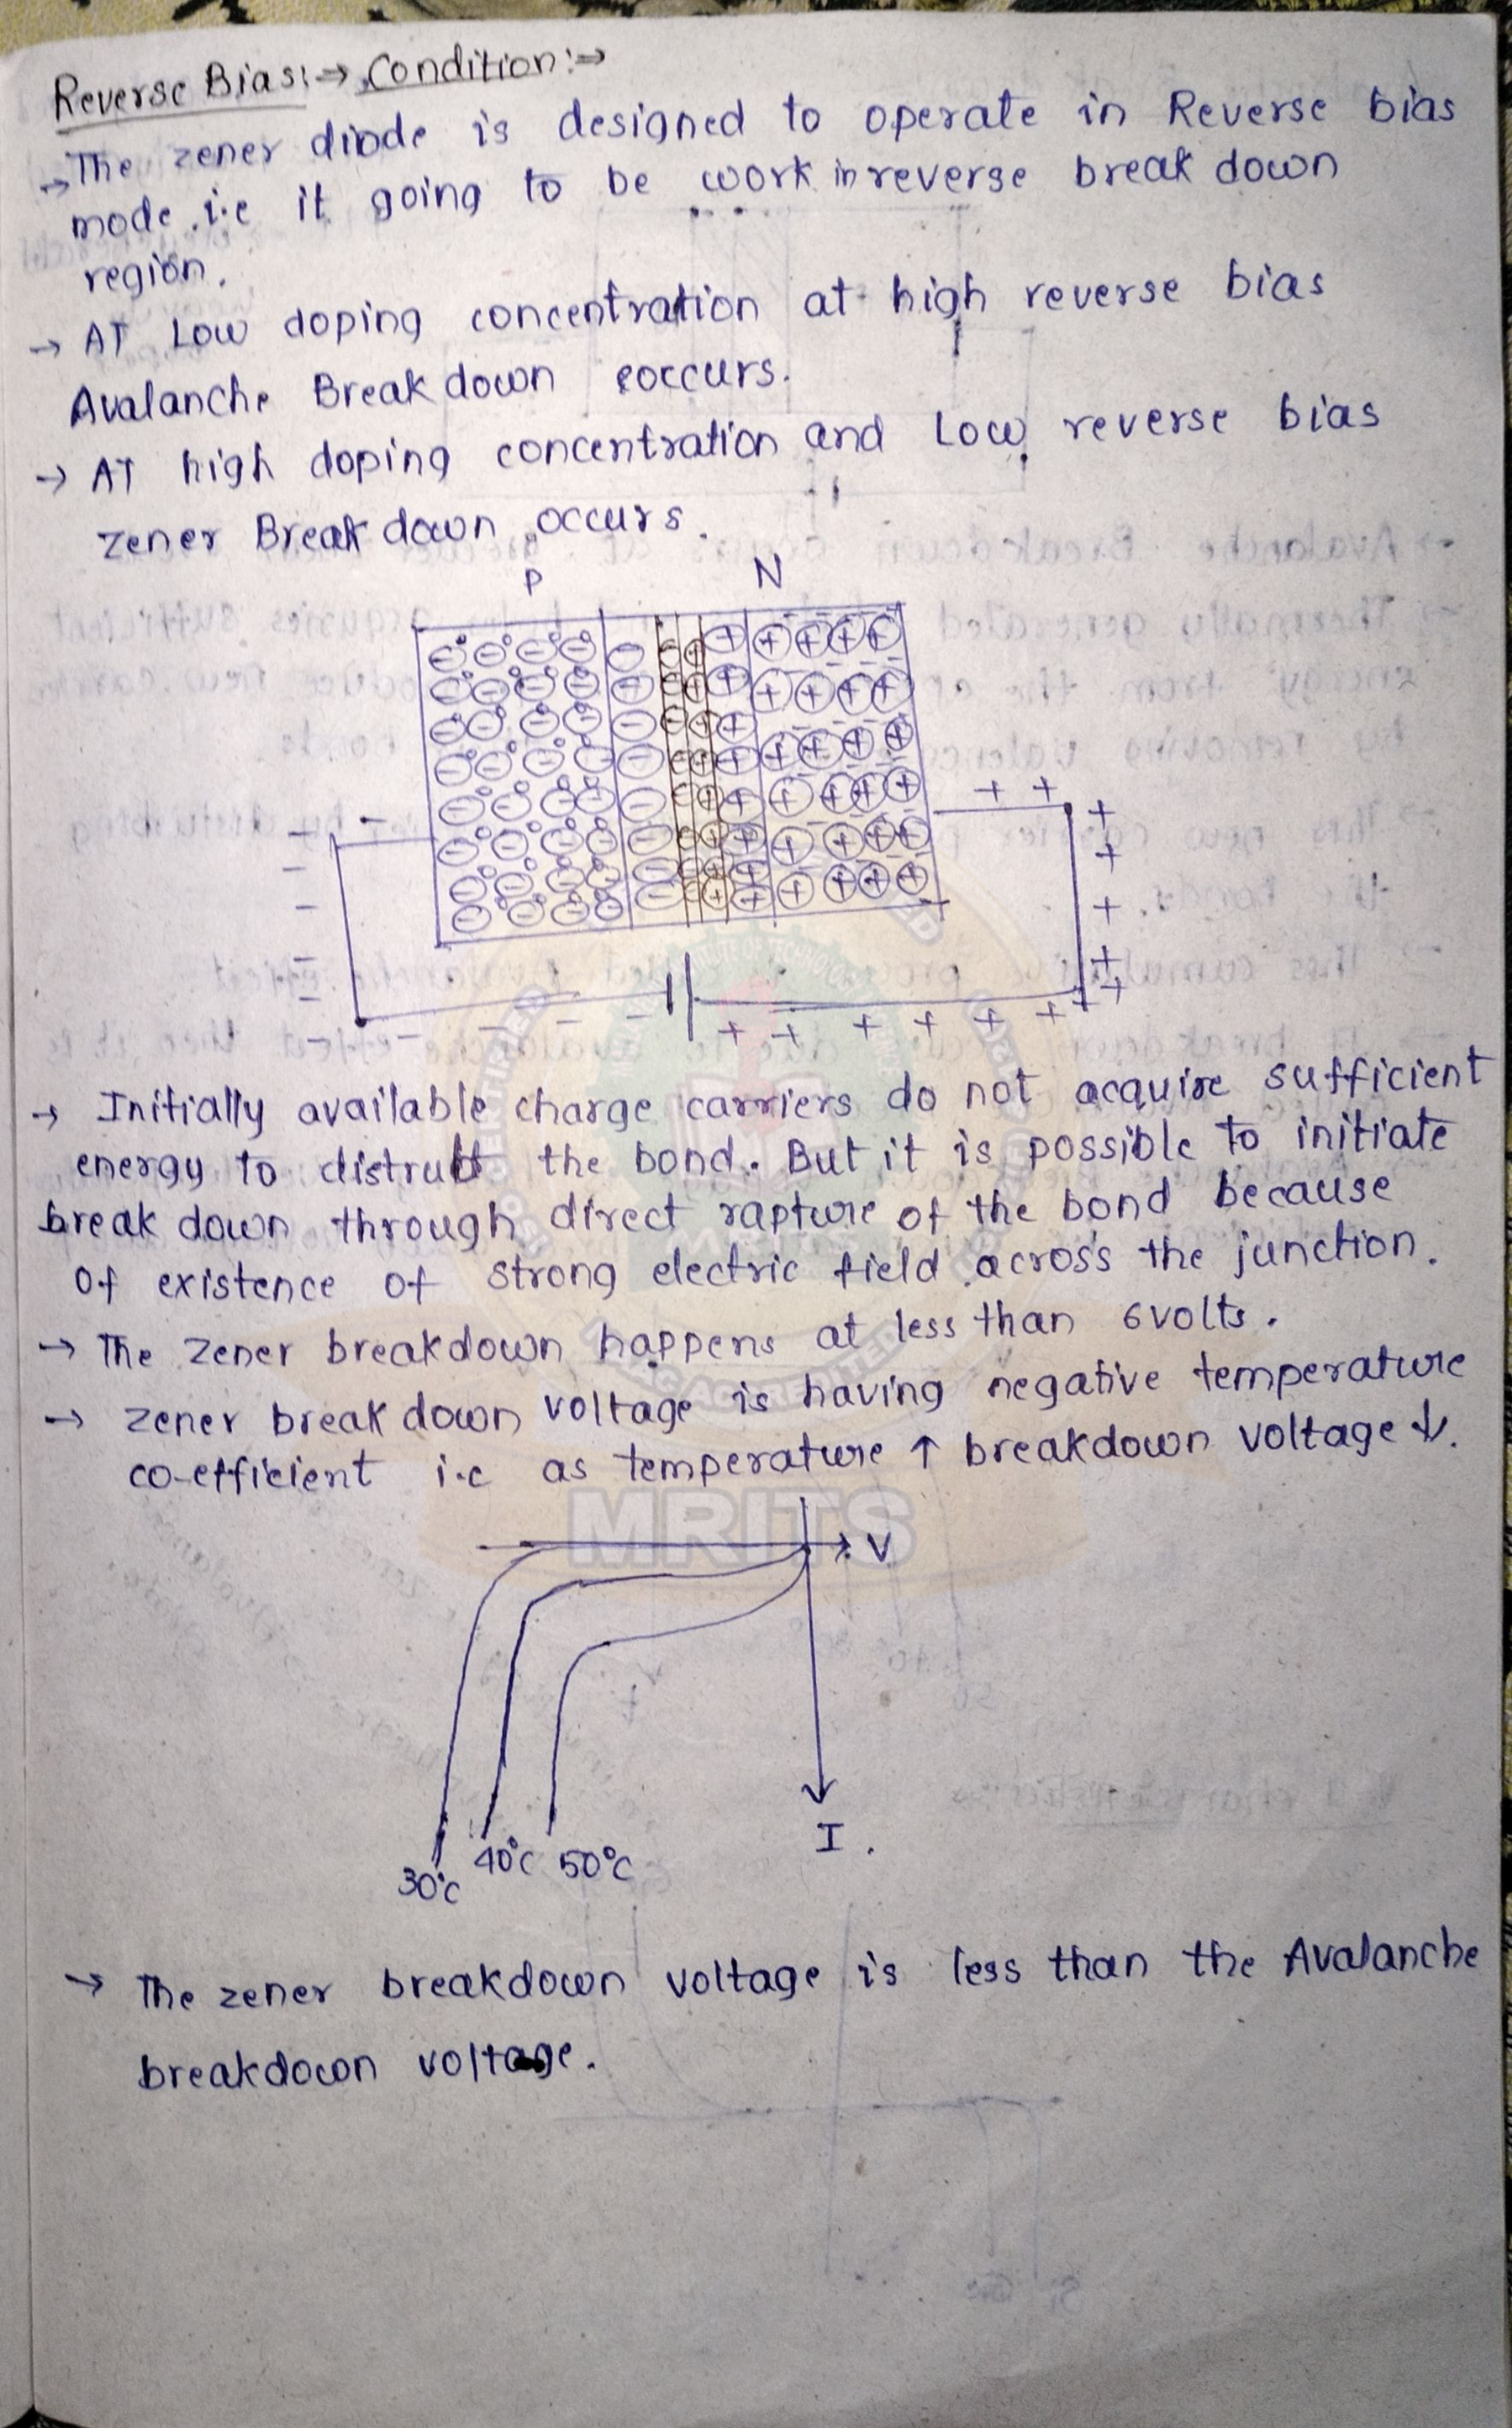 Reverse Bias:→ Condition:⇒
→ The zener diode is designed to operate in Reverse bias
mode .i.e it going to be work in reverse break down
region.
→ AT Low doping concentration at high reverse bias
Avalanche Break down occurs.
→ AT high doping concentration and Low reverse bias
zener Break down occurs.
P N
→ Initially available charge carriers do not acquire sufficient
energy to the bond. But it is possible to initiate
break down through direct rapture of the bond because
of existence of strong electric field across the junction.
→ The zener breakdown happens at less than 6volts.
→ zener break down voltage is having negative temperature
co-efficient i.e as temperature ↑ breakdown voltage ↓.
MRITS
V
I.
30°C 40°C 50°C
→ The zener breakdown voltage is less than the Avalanche
breakdown voltage.